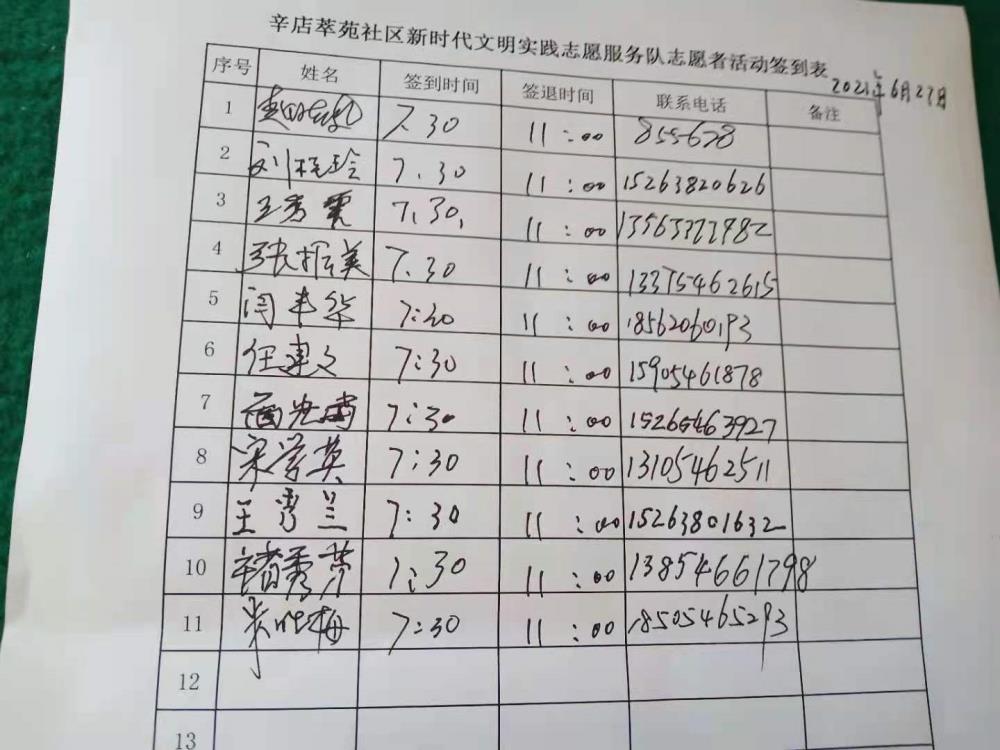 辛店萃苑社区新时代文明实践志愿服务队志愿者活动签到表
2021年6月27日
序号 姓名 签到时间 签退时间 联系电话 备注
1 7.30 11:00 855678
2 刘桂玲 7.30 11:00 15263820626
3 王秀云 7.30 11:00
4 张振美 7.30 11:00 13375462615
5 闫丰华 7:30 11:00 18562060193
6 任建文 7:30 11:00 15905461878
7 7:30 11:00 15266463927
8 宋学英 7:30 11:00 13105462511
9 王秀兰 7:30 11:00 15263801632
10 褚秀芳 7:30 11:00 13854661798
11 7:30 11:00 18505465293
12
13